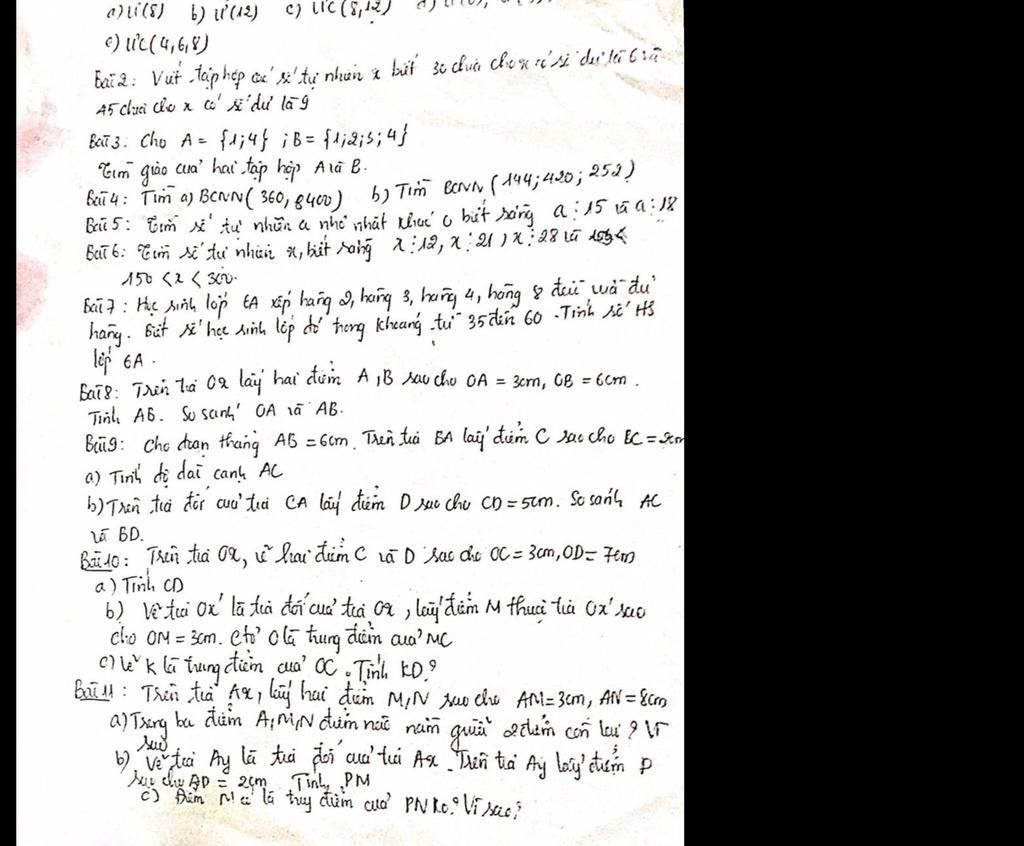 a) Ư(8) b) Ư(12) c) ƯC(8,12)
e) ƯC(4,6,8)
Bài 2: Viết tập hợp các số tự nhiên x biết 30 chia cho x có số dư là 6 và
45 chia cho x có số dư là 9
Bài 3: Cho A = {1;4} ; B = {1;2;3;4}
Tìm giao của hai tập hợp A và B.
Bài 4: Tìm a) BCNN(360, 8400) b) Tìm BCNN (144; 420; 252)
Bài 5: Tìm số tự nhiên a nhỏ nhất khác 0 biết rằng a ⋮ 15 và a ⋮ 18
Bài 6: Tìm số tự nhiên x, biết rằng x ⋮ 12, x ⋮ 21, x ⋮ 28 và
150 < x < 300.
Bài 7: Học sinh lớp 6A xếp hàng 2, hàng 3, hàng 4, hàng 8 đều vừa đủ
hàng. Biết số học sinh lớp đó trong khoảng từ 35 đến 60. Tính số HS
lớp 6A.
Bài 8: Trên tia Ox lấy hai điểm A, B sao cho OA = 3cm, OB = 6cm.
Tính AB. So sánh OA và AB.
Bài 9: Cho đoạn thẳng AB = 6cm. Trên tia BA lấy điểm C sao cho BC =
a) Tính độ dài cạnh AC
b) Trên tia đối của tia CA lấy điểm D sao cho CD = 5cm. So sánh AC
và BD.
Bài 10: Trên tia Ox, vẽ hai điểm C và D sao cho OC = 3cm, OD = 7cm
a) Tính CD
b) Vẽ tia Ox' là tia đối của tia Ox, lấy điểm M thuộc tia Ox' sao
cho OM = 3cm. Ctỏ O là trung điểm của MC
c) Vẽ K là trung điểm của OC. Tính KD?
Bài 11: Trên tia Ax, lấy hai điểm M,N sao cho AM=3cm, AN=8cm
a) Trong ba điểm A,M,N điểm nào nằm giữa 2 điểm còn lại? Vì
sao
b) Vẽ tia Ay là tia đối của tia Ax. Trên tia Ay lấy điểm P
sao cho = 2cm. Tính PM
c) Điểm M có là trug điểm của PN ko? Vì sao?